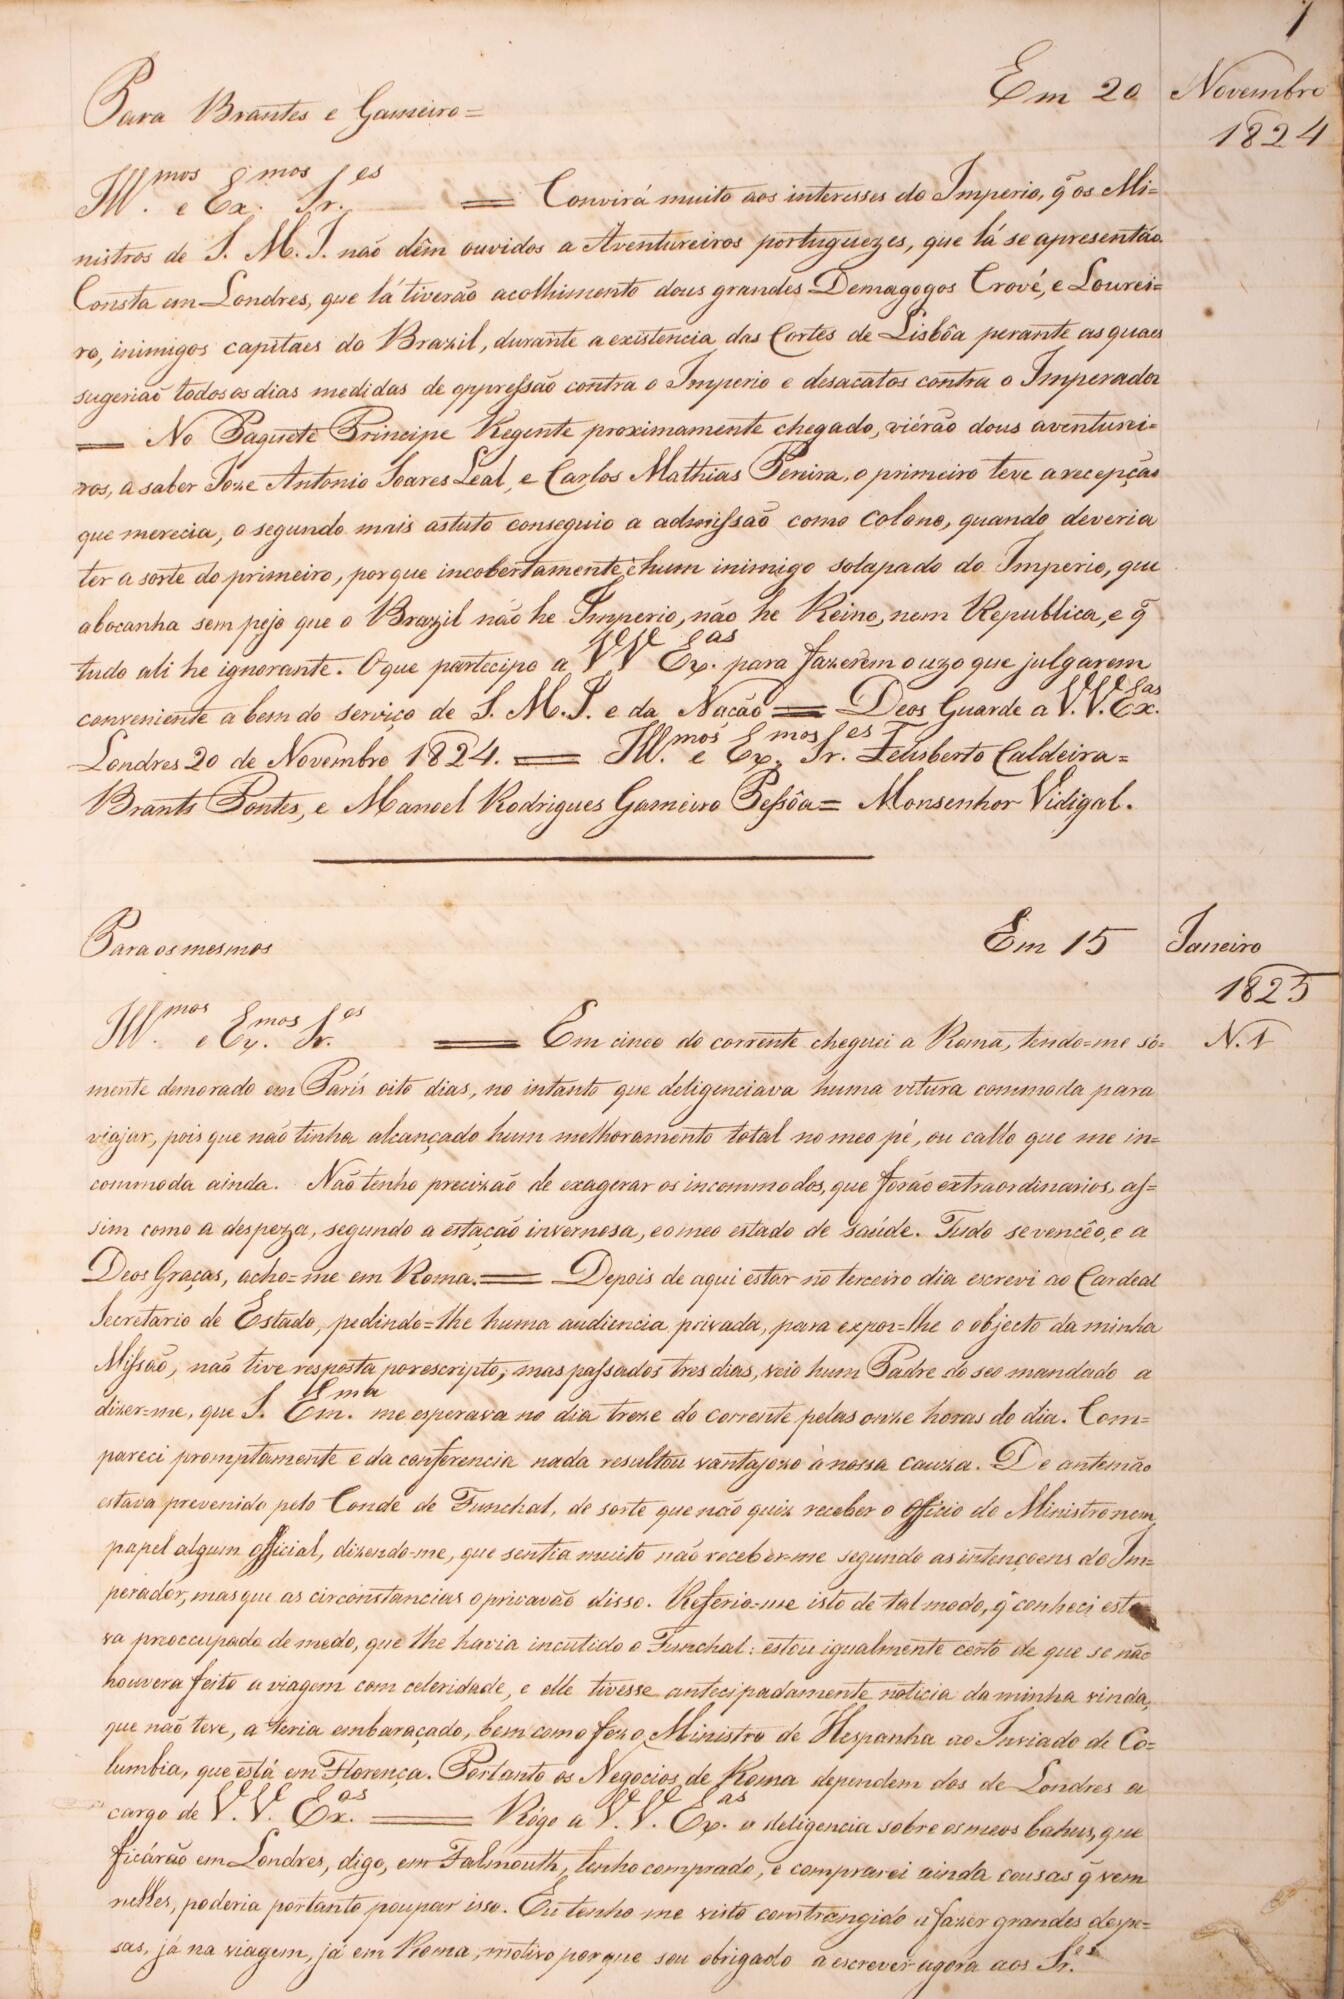 1
Para Brantes e Gameiro= Em 20 Novembro
1824
Ill.mos e Ex.mos Sr.es == Convirá muito aos interesses do Imperio, q̃ os Mi=
nistros de S. M. I. não dêm ouvidos a Aventureiros portuguezes, que lá se apresentão.
Consta em Londres, que lá tiverão acolhimento dous grandes Demagogos Crové, e Lourei=
ro, inimigos capitaes do Brazil, durante a existencia das Cortes de Lisbôa perante as quaes
sugerião todos os dias medidas de oppressão contra o Imperio e desacatos contra o Imperador
== No Paquete Principe Regente proximamente chegado, viérão dous aventurei=
ros, a saber Joze Antonio Soares Leal, e Carlos Mathias Pereira, o primeiro teve a recepção
que merecia, o segundo mais astuto conseguio a admissão como colono, quando deveria
ter a sorte do primeiro, porque incobertamente é hum inimigo solapado do Imperio, que
abocanha sem pejo que o Brazil não he Imperio, não he Reino, nem Republica, e q̃
tudo ali he ignorante. O que partecipo a VV Ex.as para fazerem o uzo que julgarem
conveniente a bem do serviço de S. M. I. e da Nacão == Deos Guarde a V.V. Ex.as
Londres 20 de Novembro 1824. == Ill.mos e Ex.mos Sr.es Felisberto Caldeira=
Brants Pontes, e Manoel Rodrigues Gameiro Pessôa= Monsenhor Vidigal.
Para os mesmos Em 15 Janeiro
1825
Ill.mos e Ex.mos Sr.es == Em cinco do corrente cheguei a Roma, tendo=me só= N. 1
mente demorado em París oito dias, no intanto que deligenciava huma vitura commoda para
viajar, pois que não tinha alcançado hum melhoramento total no meo pé, ou callo que me in=
commoda ainda. Não tenho precizão de exagerar os incommodos, que forão extraordinarios, as=
sim como a despeza, segundo a estação invernosa, e o meo estado de saúde. Tudo se vencêo, e a
Deos Graças, acho=me em Roma. == Depois de aqui estar no terceiro dia escrevi ao Cardeal
Secretario de Estado, pedindo=lhe huma audiencia privada, para expor=lhe o objecto da minha
Missão, não tive resposta por escripto; mas passados tres dias, veio hum Padre do seo mandado a
dizer=me, que S. Em.ma me esperava no dia treze do corrente pelas onze horas do dia. Com=
pareci promptamente e da conferencia nada resultou vantajozo à nossa cauza. De antemão
estava prevenido pelo Conde de Funchal, de sorte que não quiz receber o Officio do Ministro nem
papel algum official, dizendo=me, que sentia muito não receber=me segundo as intençoens do Im=
perador, mas que as circonstancias o privavão disso. Referio=me isto de tal modo, q̃ conheci esta=
va preoccupado de medo, que lhe havia incutido o Funchal: estou igualmente certo de que se não
houvera feito a viagem com celeridade, e elle tivesse antecipadamente noticia da minha vinda,
que não teve, a teria embaraçado, bem como fez o Ministro de Hespanha ao Inviado de Co=
lumbia, que está em Florença. Portanto os Negocios de Roma dependem dos de Londres a
cargo de V. V. Ex.as == Rógo a V. V. Ex.as a deligencia sobre os meos bahus, que
ficárão em Londres, digo, em Falmouth, tenho comprado, e comprarei ainda cousas q̃ vem
nelles, poderia portanto poupar isso. Eu tenho me visto constrangido a fazer grandes despe=
sas, já na viagem, já em Roma, motivo porque sou obrigado a escrever agora aos Sr.es